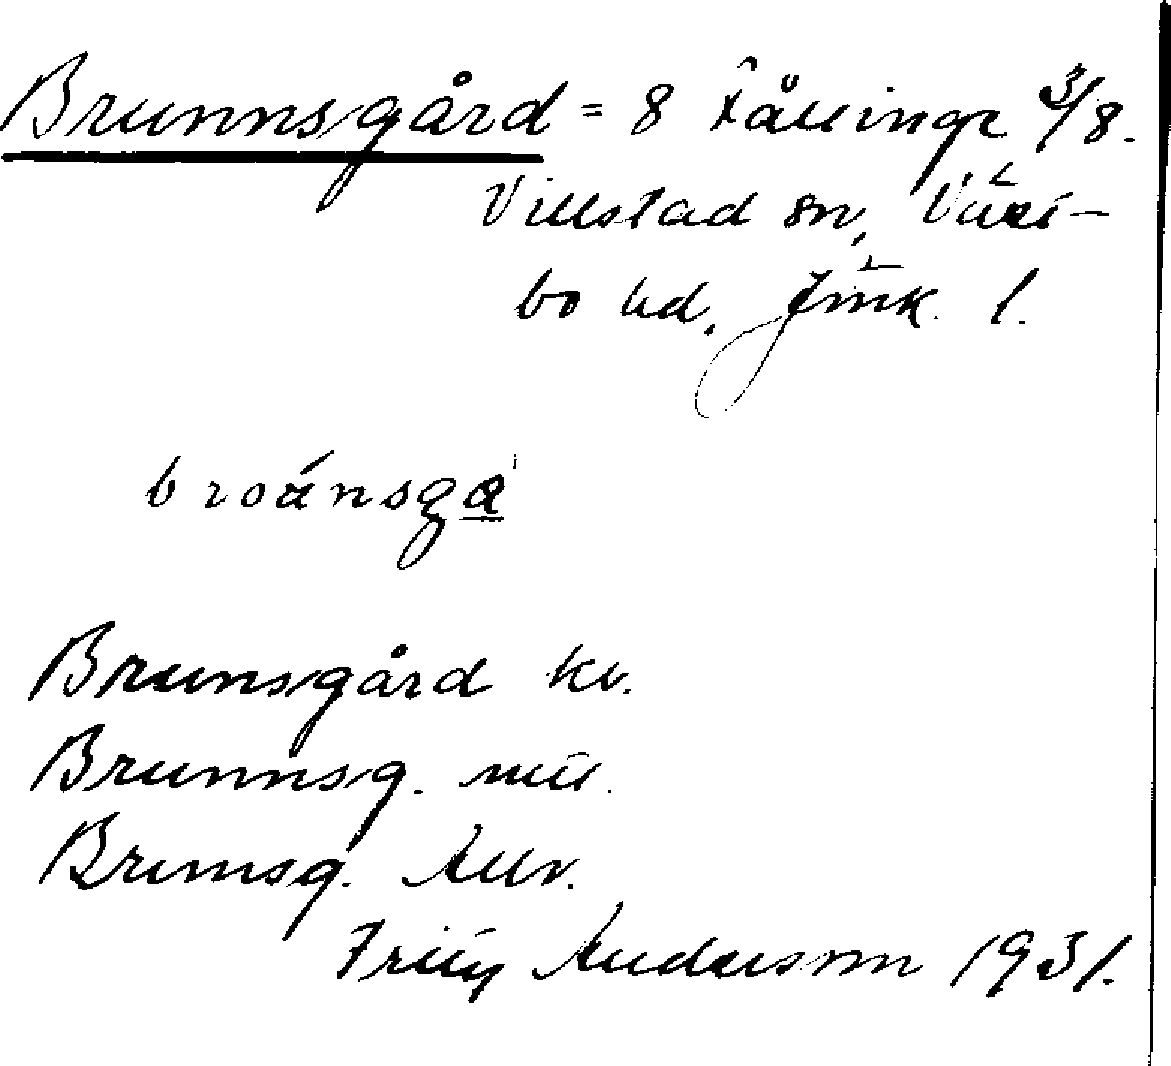 Brunnsgård = 8 Kållinge 3/8.
Villstad sn, Väst-
bo hd. Jönk. l.
broánsga
Brunsgård kv.
Brunnsg. mtl.
Brunsg.
Fritz Anderson 1931.